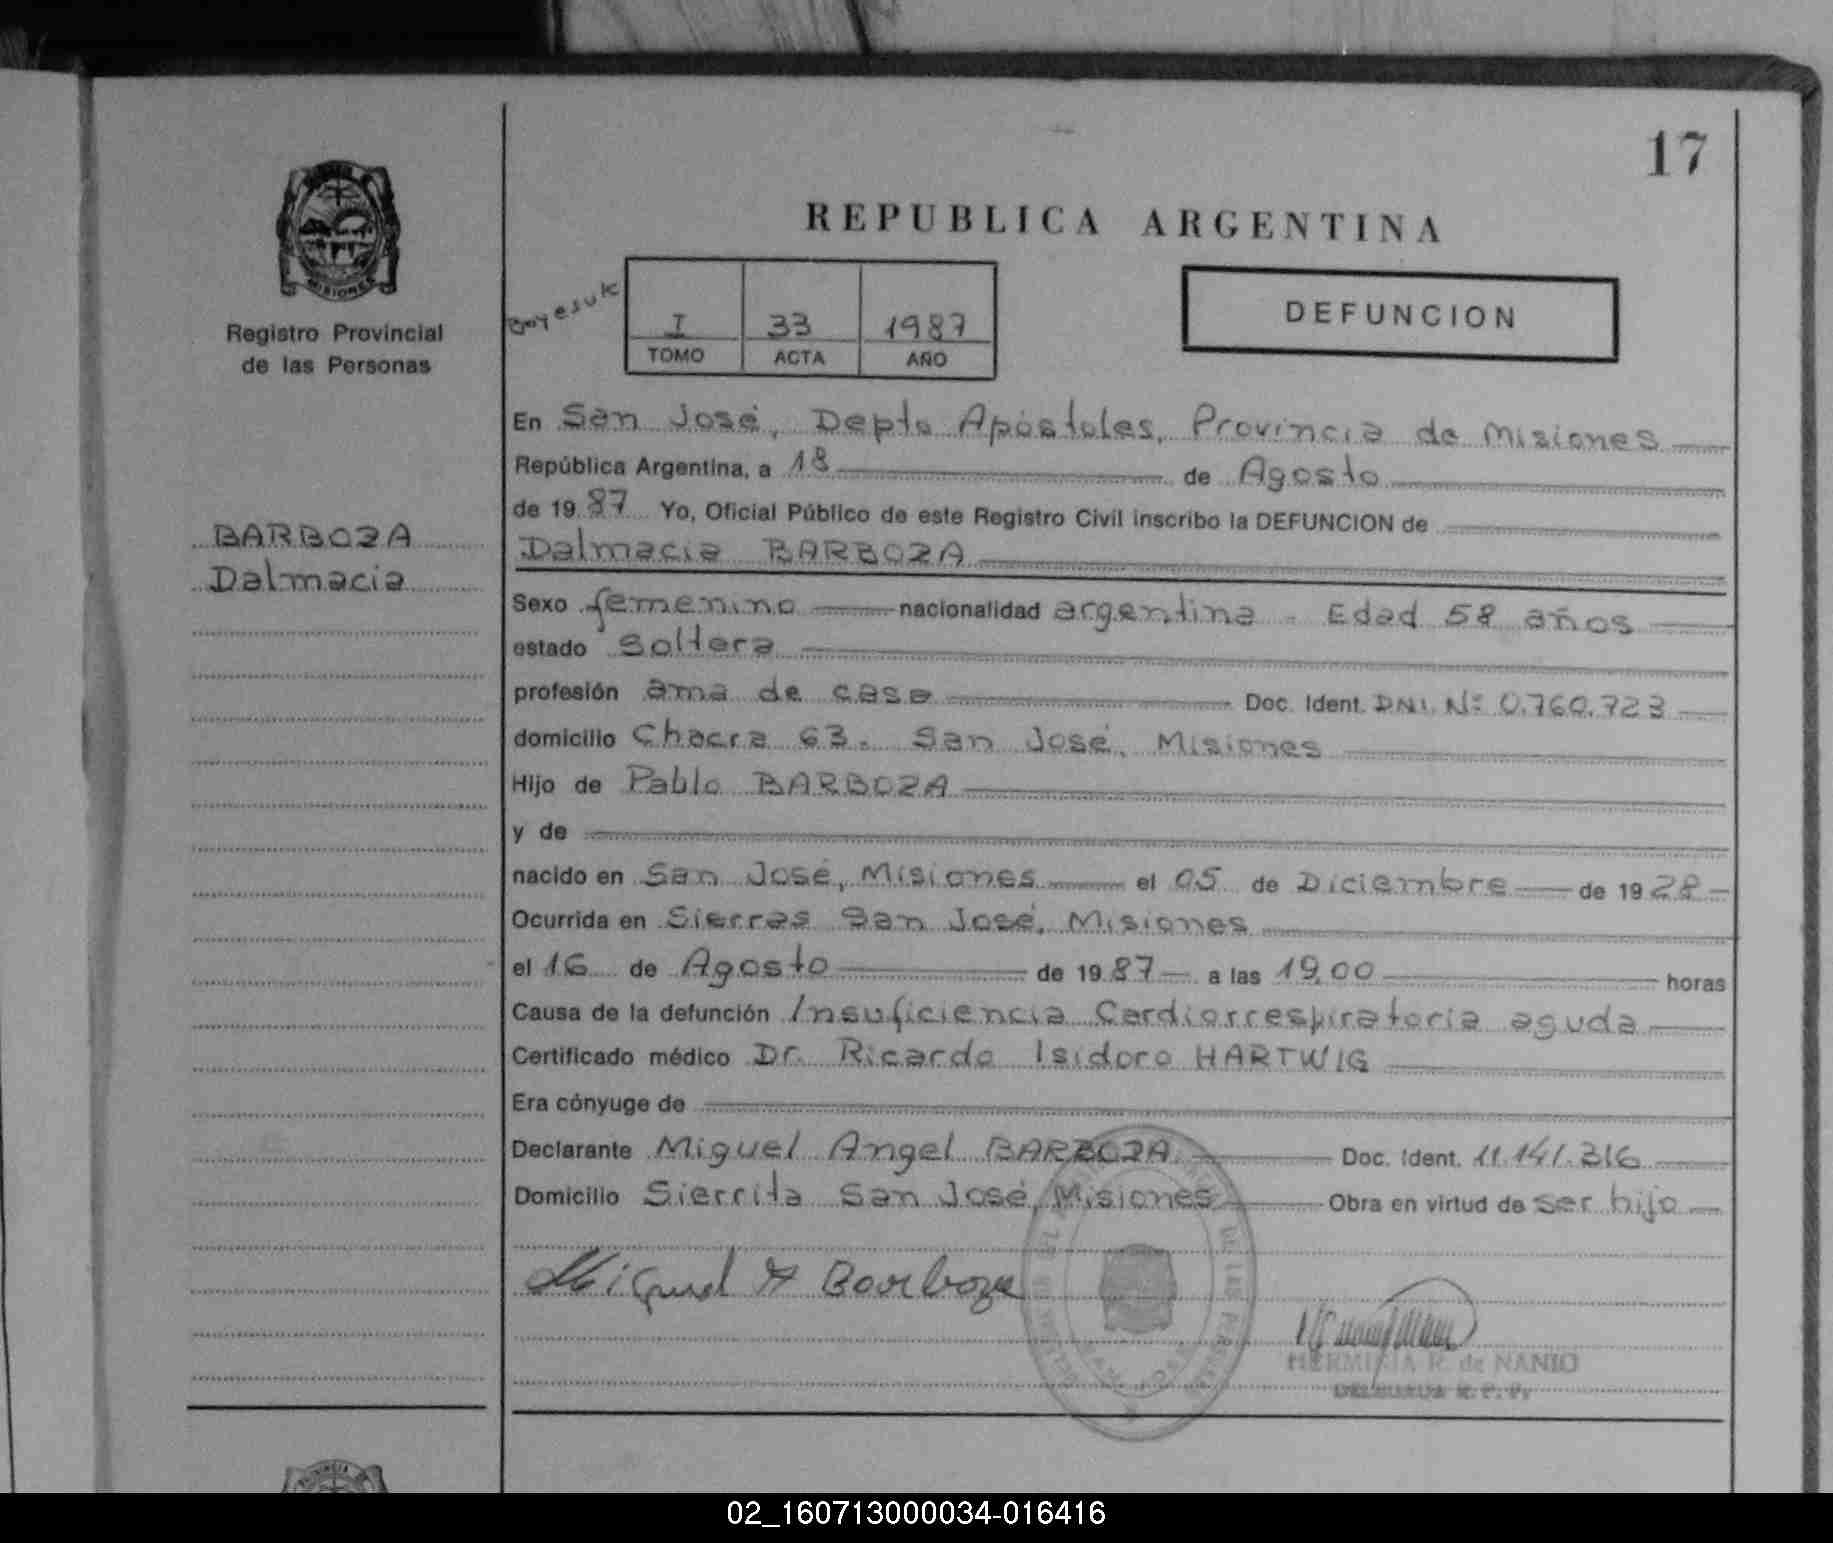 17
REPUBLICA ARGENTINA
MISIONES
Registro Provincial
de las Personas
I 33 1987
TOMO ACTA AÑO
DEFUNCION
BARBOZA
Dalmacia
En San José, Depto Apóstoles, Provincia de Misiones
República Argentina, a 18 de Agosto
de 1987 Yo, Oficial Público de este Registro Civil inscribo la DEFUNCION de
Dalmacia BARBOZA
Sexo femenino nacionalidad argentina - Edad 58 años
estado Soltera
profesión ama de casa Doc. Ident. DNI. Nº 0.760.723
domicilio Chacra 63. San José, Misiones
Hijo de Pablo BARBOZA
y de
nacido en San José, Misiones el 05 de Diciembre de 1928
Ocurrida en Sierras San José, Misiones
el 16 de Agosto de 1987 a las 19,00 horas
Causa de la defunción Insuficiencia Cardiorrespiratoria aguda
Certificado médico Dr. Ricardo Isidoro HARTWIG
Era cónyuge de
Declarante Miguel Angel BARBOZA Doc. Ident. 11.141.316
Domicilio Sierrita San José, Misiones Obra en virtud de ser hijo
Miguel A Barboza
HERMINIA R. de NANIO
DELEGADA R. P. P.
PROVINCIA DE
02_160713000034-016416